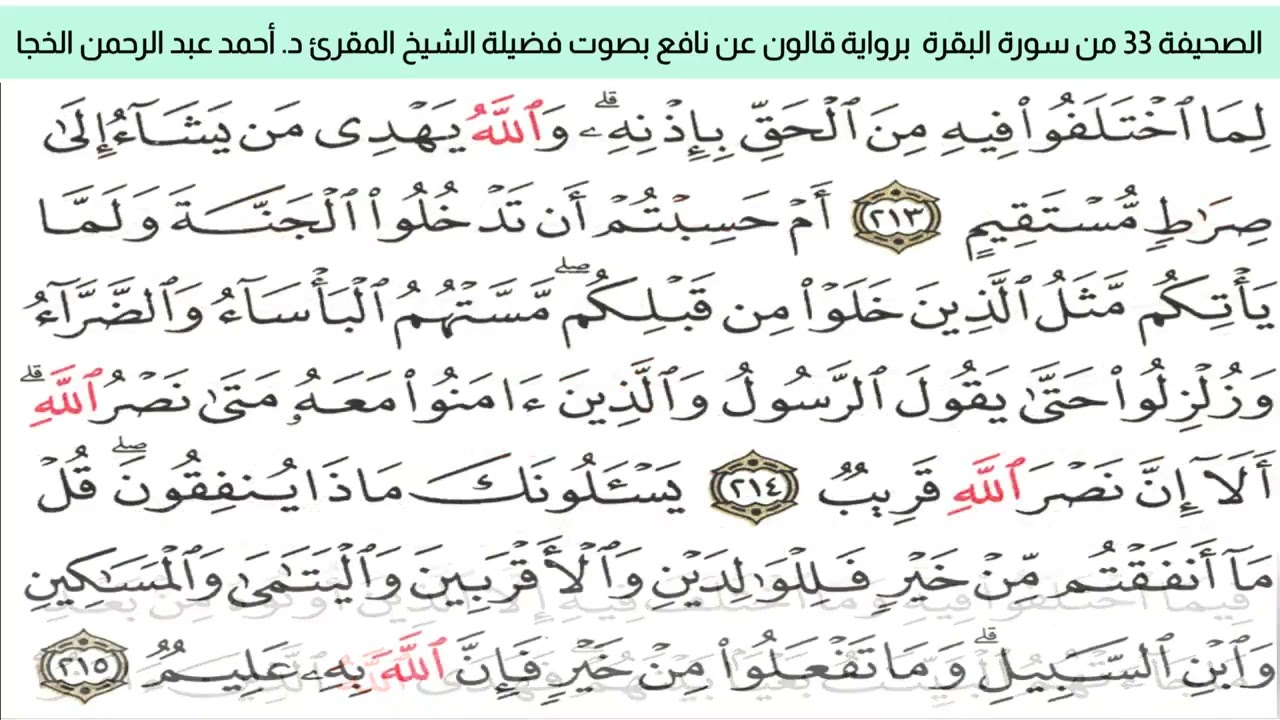 الصحيفة 33 من سورة البقرة برواية قالون عن نافع بصوت فضيلة الشيخ المقرئ د. أحمد عبد الرحمن الخجا
لِمَا ٱخْتَلَفُواْ فِيهِ مِنَ ٱلْحَقِّ بِإِذْنِهِۦۗ وَٱللَّهُ يَهْدِى مَن يَشَآءُ إِلَىٰ
صِرَٰطٍ مُّسْتَقِيمٍ ٢١٣ أَمْ حَسِبْتُمْ أَن تَدْخُلُواْ ٱلْجَنَّةَ وَلَمَّا
يَأْتِكُم مَّثَلُ ٱلَّذِينَ خَلَوْاْ مِن قَبْلِكُمۖ مَّسَّتْهُمُ ٱلْبَأْسَآءُ وَٱلضَّرَّآءُ
وَزُلْزِلُواْ حَتَّىٰ يَقُولُ ٱلرَّسُولُ وَٱلَّذِينَ ءَامَنُواْ مَعَهُۥ مَتَىٰ نَصْرُ ٱللَّهِۗ
أَلَآ إِنَّ نَصْرَ ٱللَّهِ قَرِيبٌ ٢١٤ يَسْـَٔلُونَكَ مَاذَا يُنفِقُونَۖ قُلْ
مَآ أَنفَقْتُم مِّنْ خَيْرٍ فَلِلْوَٰلِدَيْنِ وَٱلْأَقْرَبِينَ وَٱلْيَتَٰمَىٰ وَٱلْمَسَٰكِينِ
وَٱبْنِ ٱلسَّبِيلِۗ وَمَا تَفْعَلُواْ مِنْ خَيْرٍ فَإِنَّ ٱللَّهَ بِهِۦ عَلِيمٌ ٢١٥